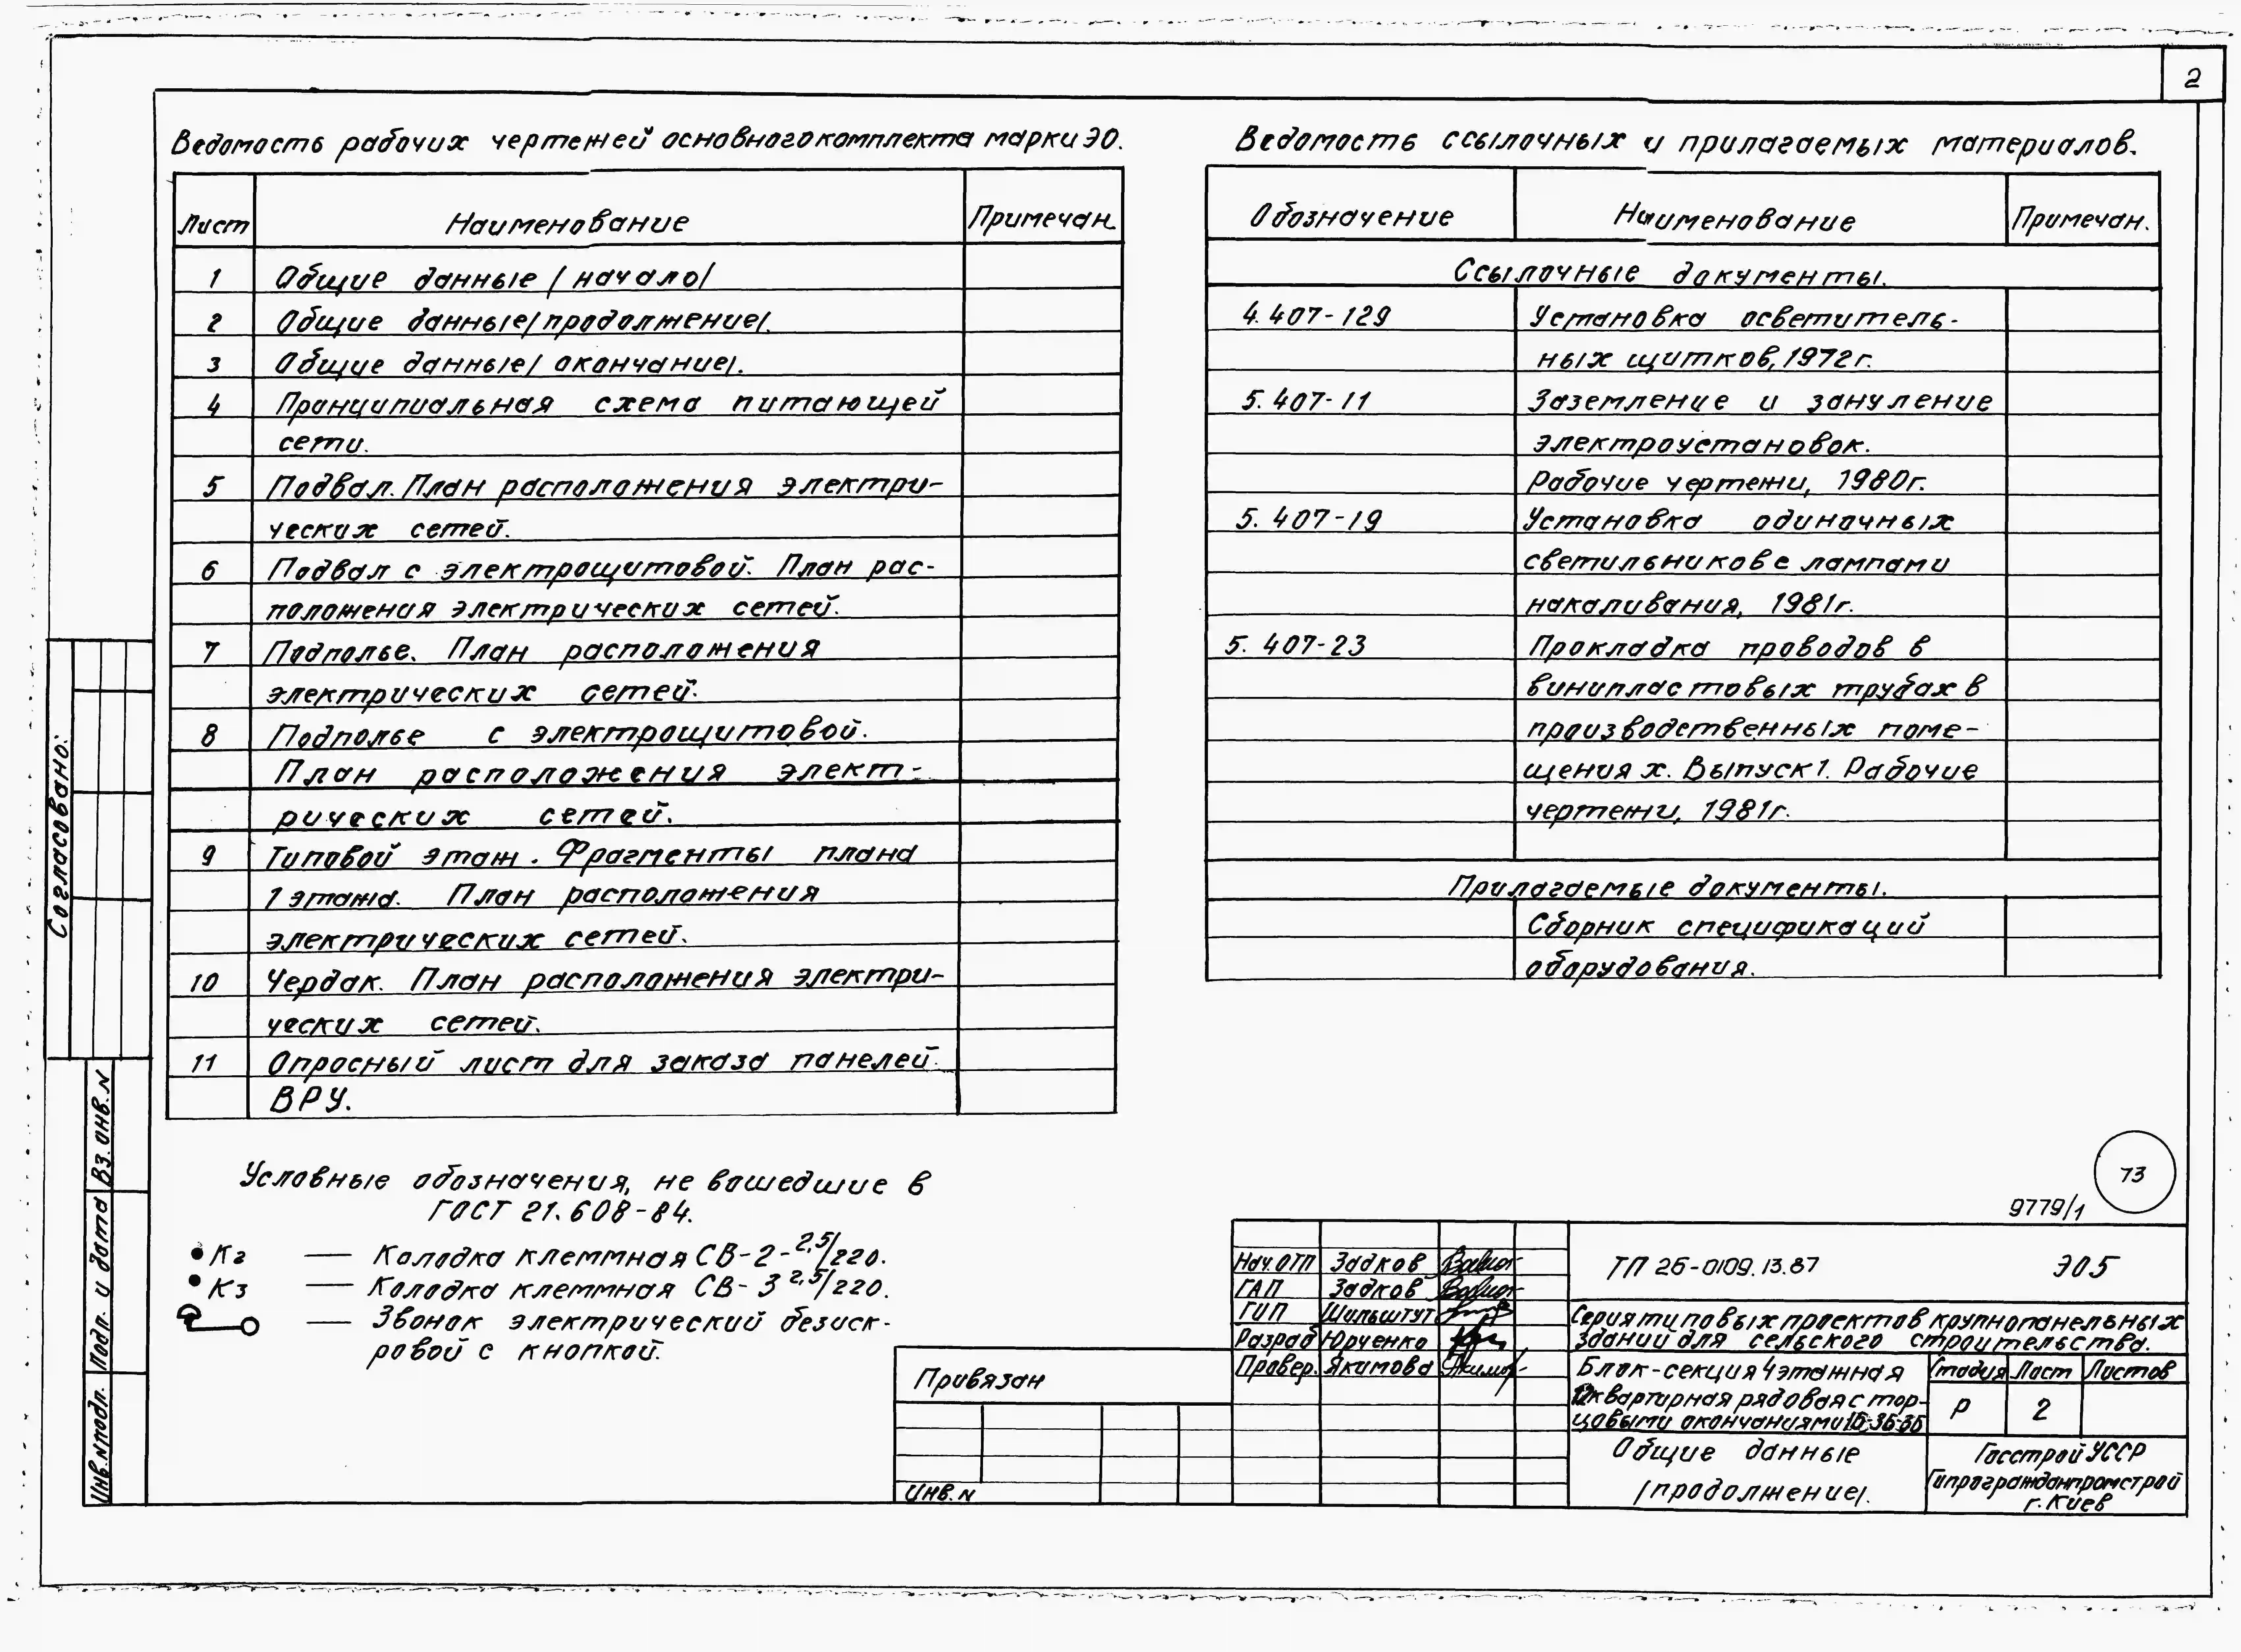 2
Ведомость рабочих чертежей основного комплекта марки ЭО.
Лист Наименование Примечан.
1 Общие данные /начало/
2 Общие данные /продолжение/.
3 Общие данные /окончание/.
4 Принципиальная схема питающей
сети.
5 Подвал. План расположения электри-
ческих сетей.
6 Подвал с электрощитовой. План рас-
положения электрических сетей.
7 Подполье. План расположения
электрических сетей.
8 Подполье с электрощитовой.
План расположения элект-
рических сетей.
9 Типовой этаж. Фрагменты плана
1 этажа. План расположения
электрических сетей.
10 Чердак. План расположения электри-
ческих сетей.
11 Опросный лист для заказа панелей
ВРУ.
Ведомость ссылочных и прилагаемых материалов.
Обозначение Наименование Примечан.
Ссылочные документы.
4.407-129 Установка осветитель-
ных щитков, 1972г.
5.407-11 Заземление и зануление
электроустановок.
Рабочие чертежи, 1980г.
5.407-19 Установка одиночных
светильников с лампами
накаливания, 1981г.
5.407-23 Прокладка проводов в
винипластовых трубах в
производственных поме-
щениях. Выпуск 1. Рабочие
чертежи, 1981г.
Прилагаемые документы.
Сборник спецификаций
оборудования.
Условные обозначения, не вошедшие в
ГОСТ 21.608-84.
К2 — Колодка клеммная СВ-2-2,5/220.
К3 — Колодка клеммная СВ-3 2,5/220.
— Звонок электрический безиск-
ровой с кнопкой.
Согласовано:
Вз. инв. N
Подп. и дата
Инв. N подл.
73
9779/1
Нач. ОТП Задков
ГАП Задков
ГИП Шильштут
Разраб Юрченко
Провер. Якимова
ТП 26-0109.13.87 ЭО5
Серия типовых проектов крупнопанельных
зданий для сельского строительства.
Блок-секция 4 этажная
12 квартирная рядовая с тор-
цовыми окончаниями 1Б-3Б-3Б
Стадия Лист Листов
Р 2
Общие данные
/продолжение/.
Госстрой УССР
Гипрогражданпромстрой
г. Киев
Привязан
Инв. N